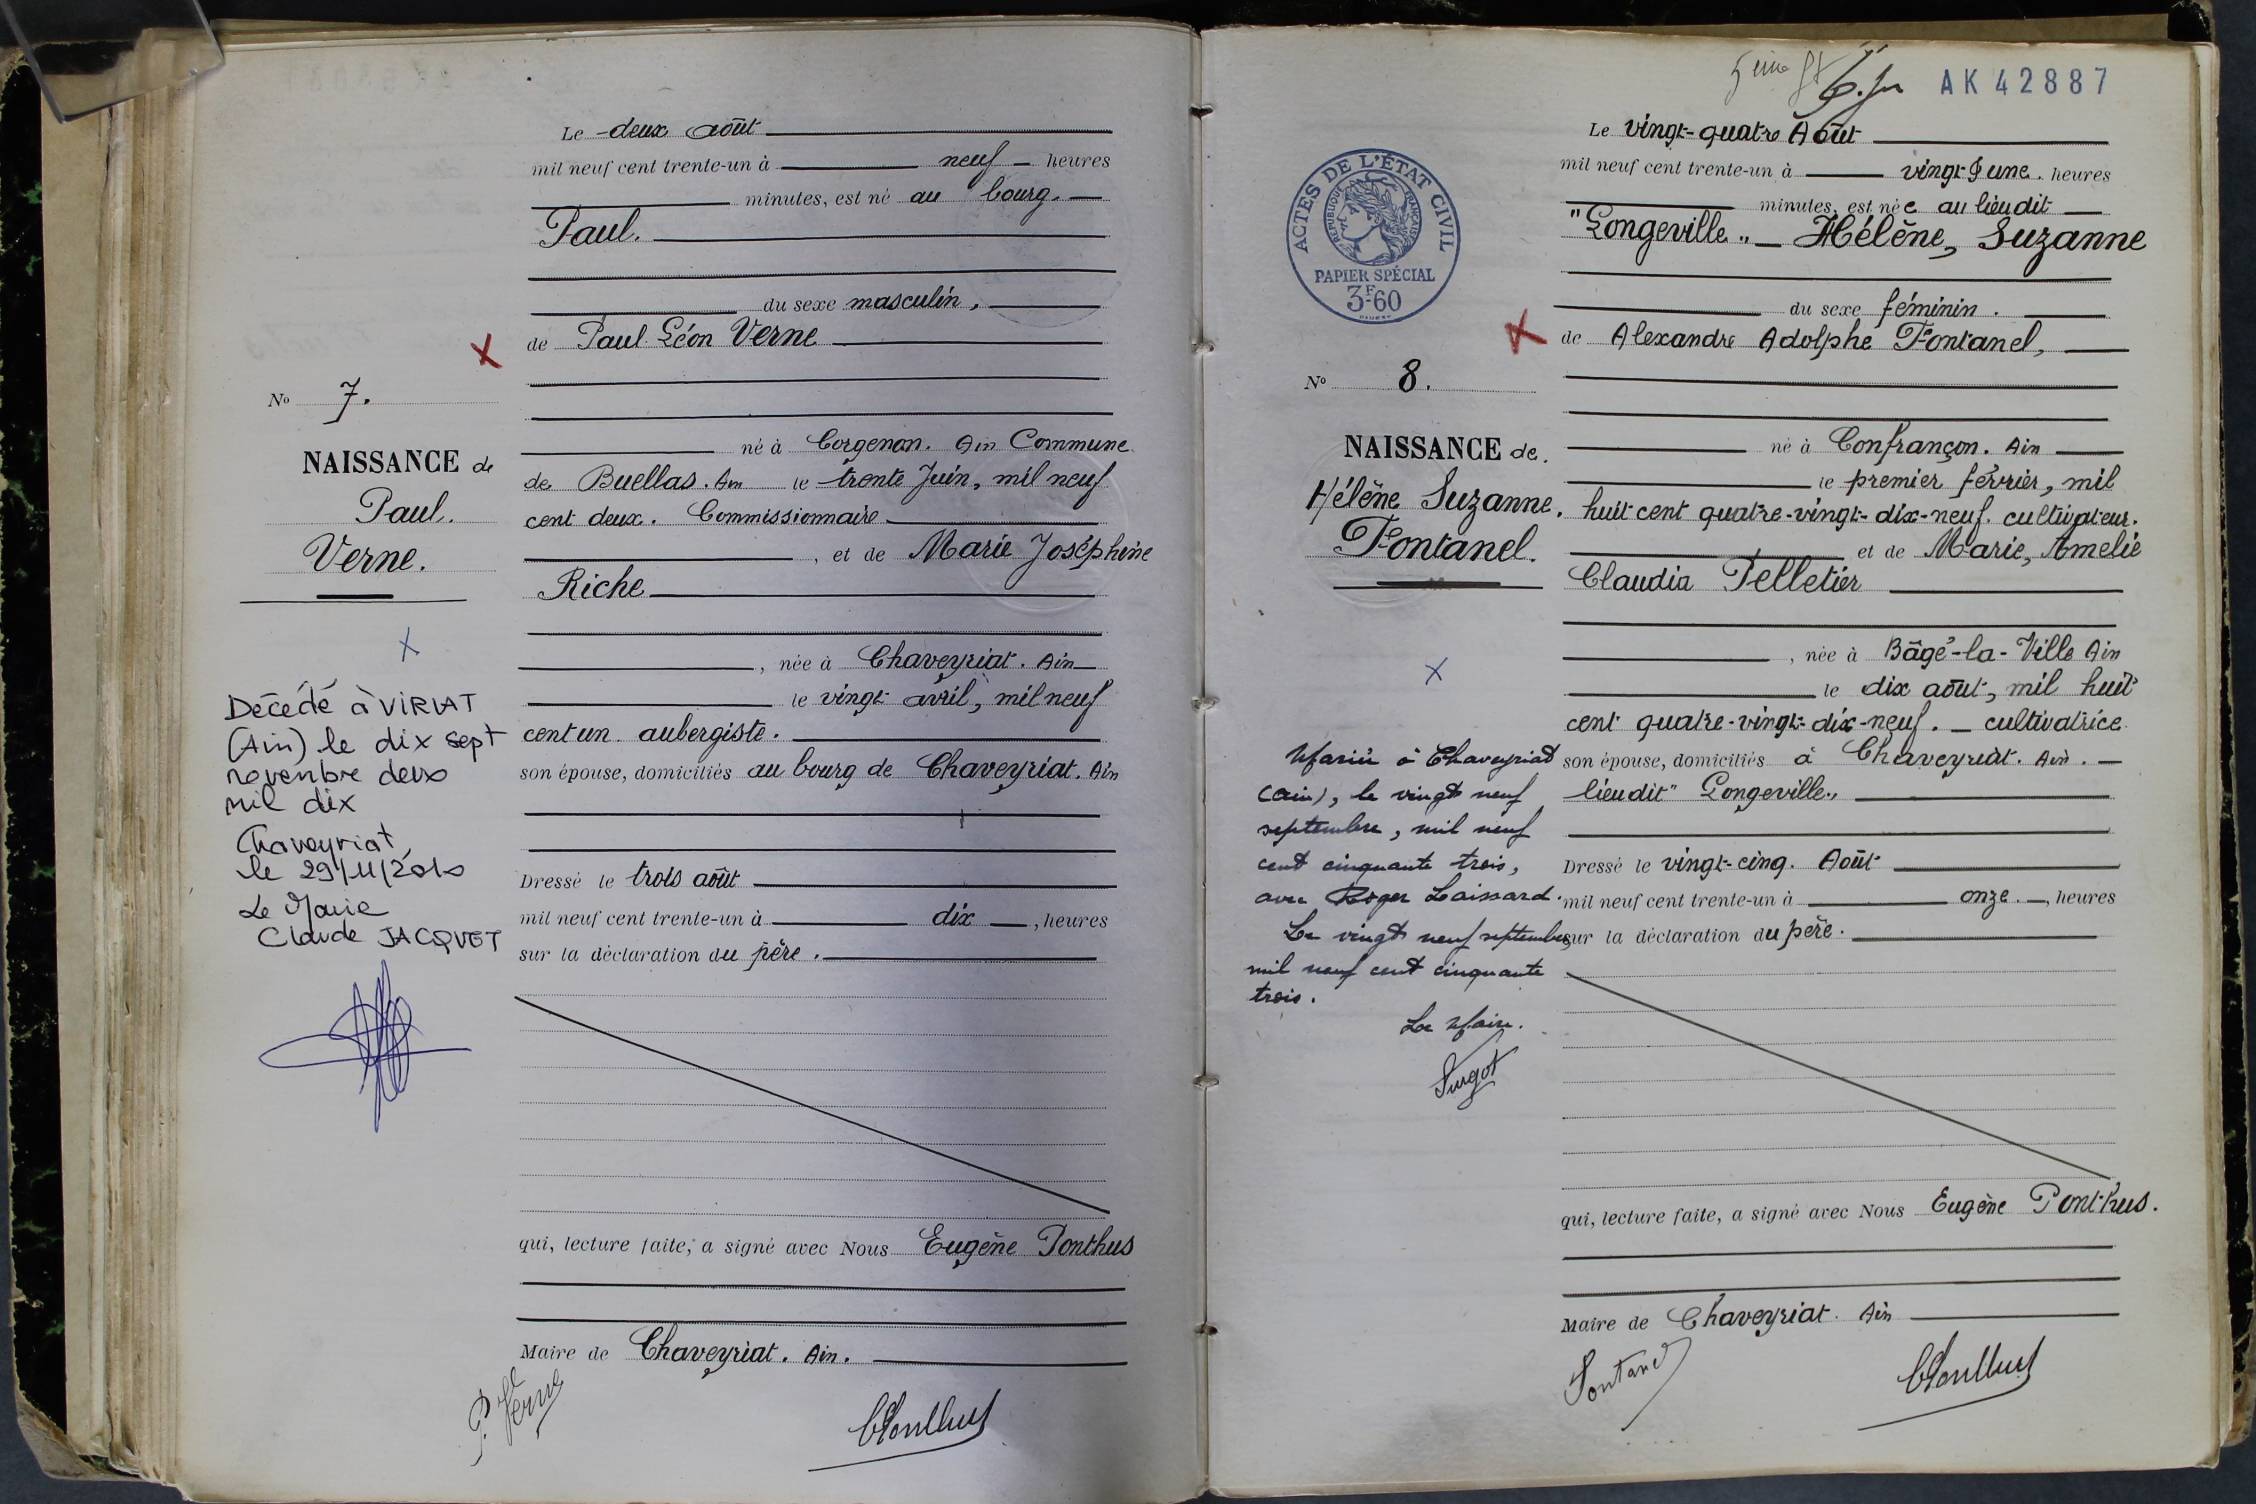 Le deux août
mil neuf cent trente-un à neuf heures
minutes, est né au bourg.
Paul.
du sexe masculin.
de Paul Léon Verne
né à Corgenon. Ain Commune
de Buellas. Ain le trente Juin, mil neuf
cent deux. Commissionnaire
, et de Marie Joséphine
Riche
, née à Chaveyriat. Ain
le vingt avril, mil neuf
cent un aubergiste.
son épouse, domiciliés au bourg de Chaveyriat. Ain
Dressé le trois août
mil neuf cent trente-un à dix , heures
sur la déclaration du père.
qui, lecture faite, a signé avec Nous Eugène Ponthus
Maire de Chaveyriat. Ain.
P. Verne
No 7.
NAISSANCE de
Paul.
Verne.
Décédé à VIRIAT
(Ain) le dix sept
novembre deux
mil dix
Chaveyriat,
le 29/11/2010
Le Maire
Claude JACQUET
AK 42887
5ème
ACTES DE L'ÉTAT CIVIL
RÉPUBLIQUE FRANÇAISE
PAPIER SPÉCIAL
3F60
Le vingt-quatre Août
mil neuf cent trente-un à vingt & une. heures
minutes, est née au lieu dit
"Longeville" Hélène, Suzanne
du sexe féminin.
de Alexandre Adolphe Fontanel,
né à Confrançon. Ain
le premier février, mil
huit cent quatre-vingt-dix-neuf. cultivateur.
et de Marie, Amelie
Claudia Pelletier
, née à Bâgé-la-Ville Ain
le dix août, mil huit
cent quatre-vingt-dix-neuf. cultivatrice
son épouse, domiciliés à Chaveyriat. Ain.
lieu dit "Longeville"
Dressé le vingt-cinq. Août
mil neuf cent trente-un à onze. , heures
sur la déclaration du père.
qui, lecture faite, a signé avec Nous Eugène Ponthus.
Maire de Chaveyriat. Ain
Fontanel
No 8.
NAISSANCE de.
Hélène Suzanne.
Fontanel.
Mariée à Chaveyriat
(ain), le vingt neuf
septembre, mil neuf
cent cinquante trois,
avec Roger Laissard.
Le vingt neuf septembre
mil neuf cent cinquante
trois.
Le Maire.